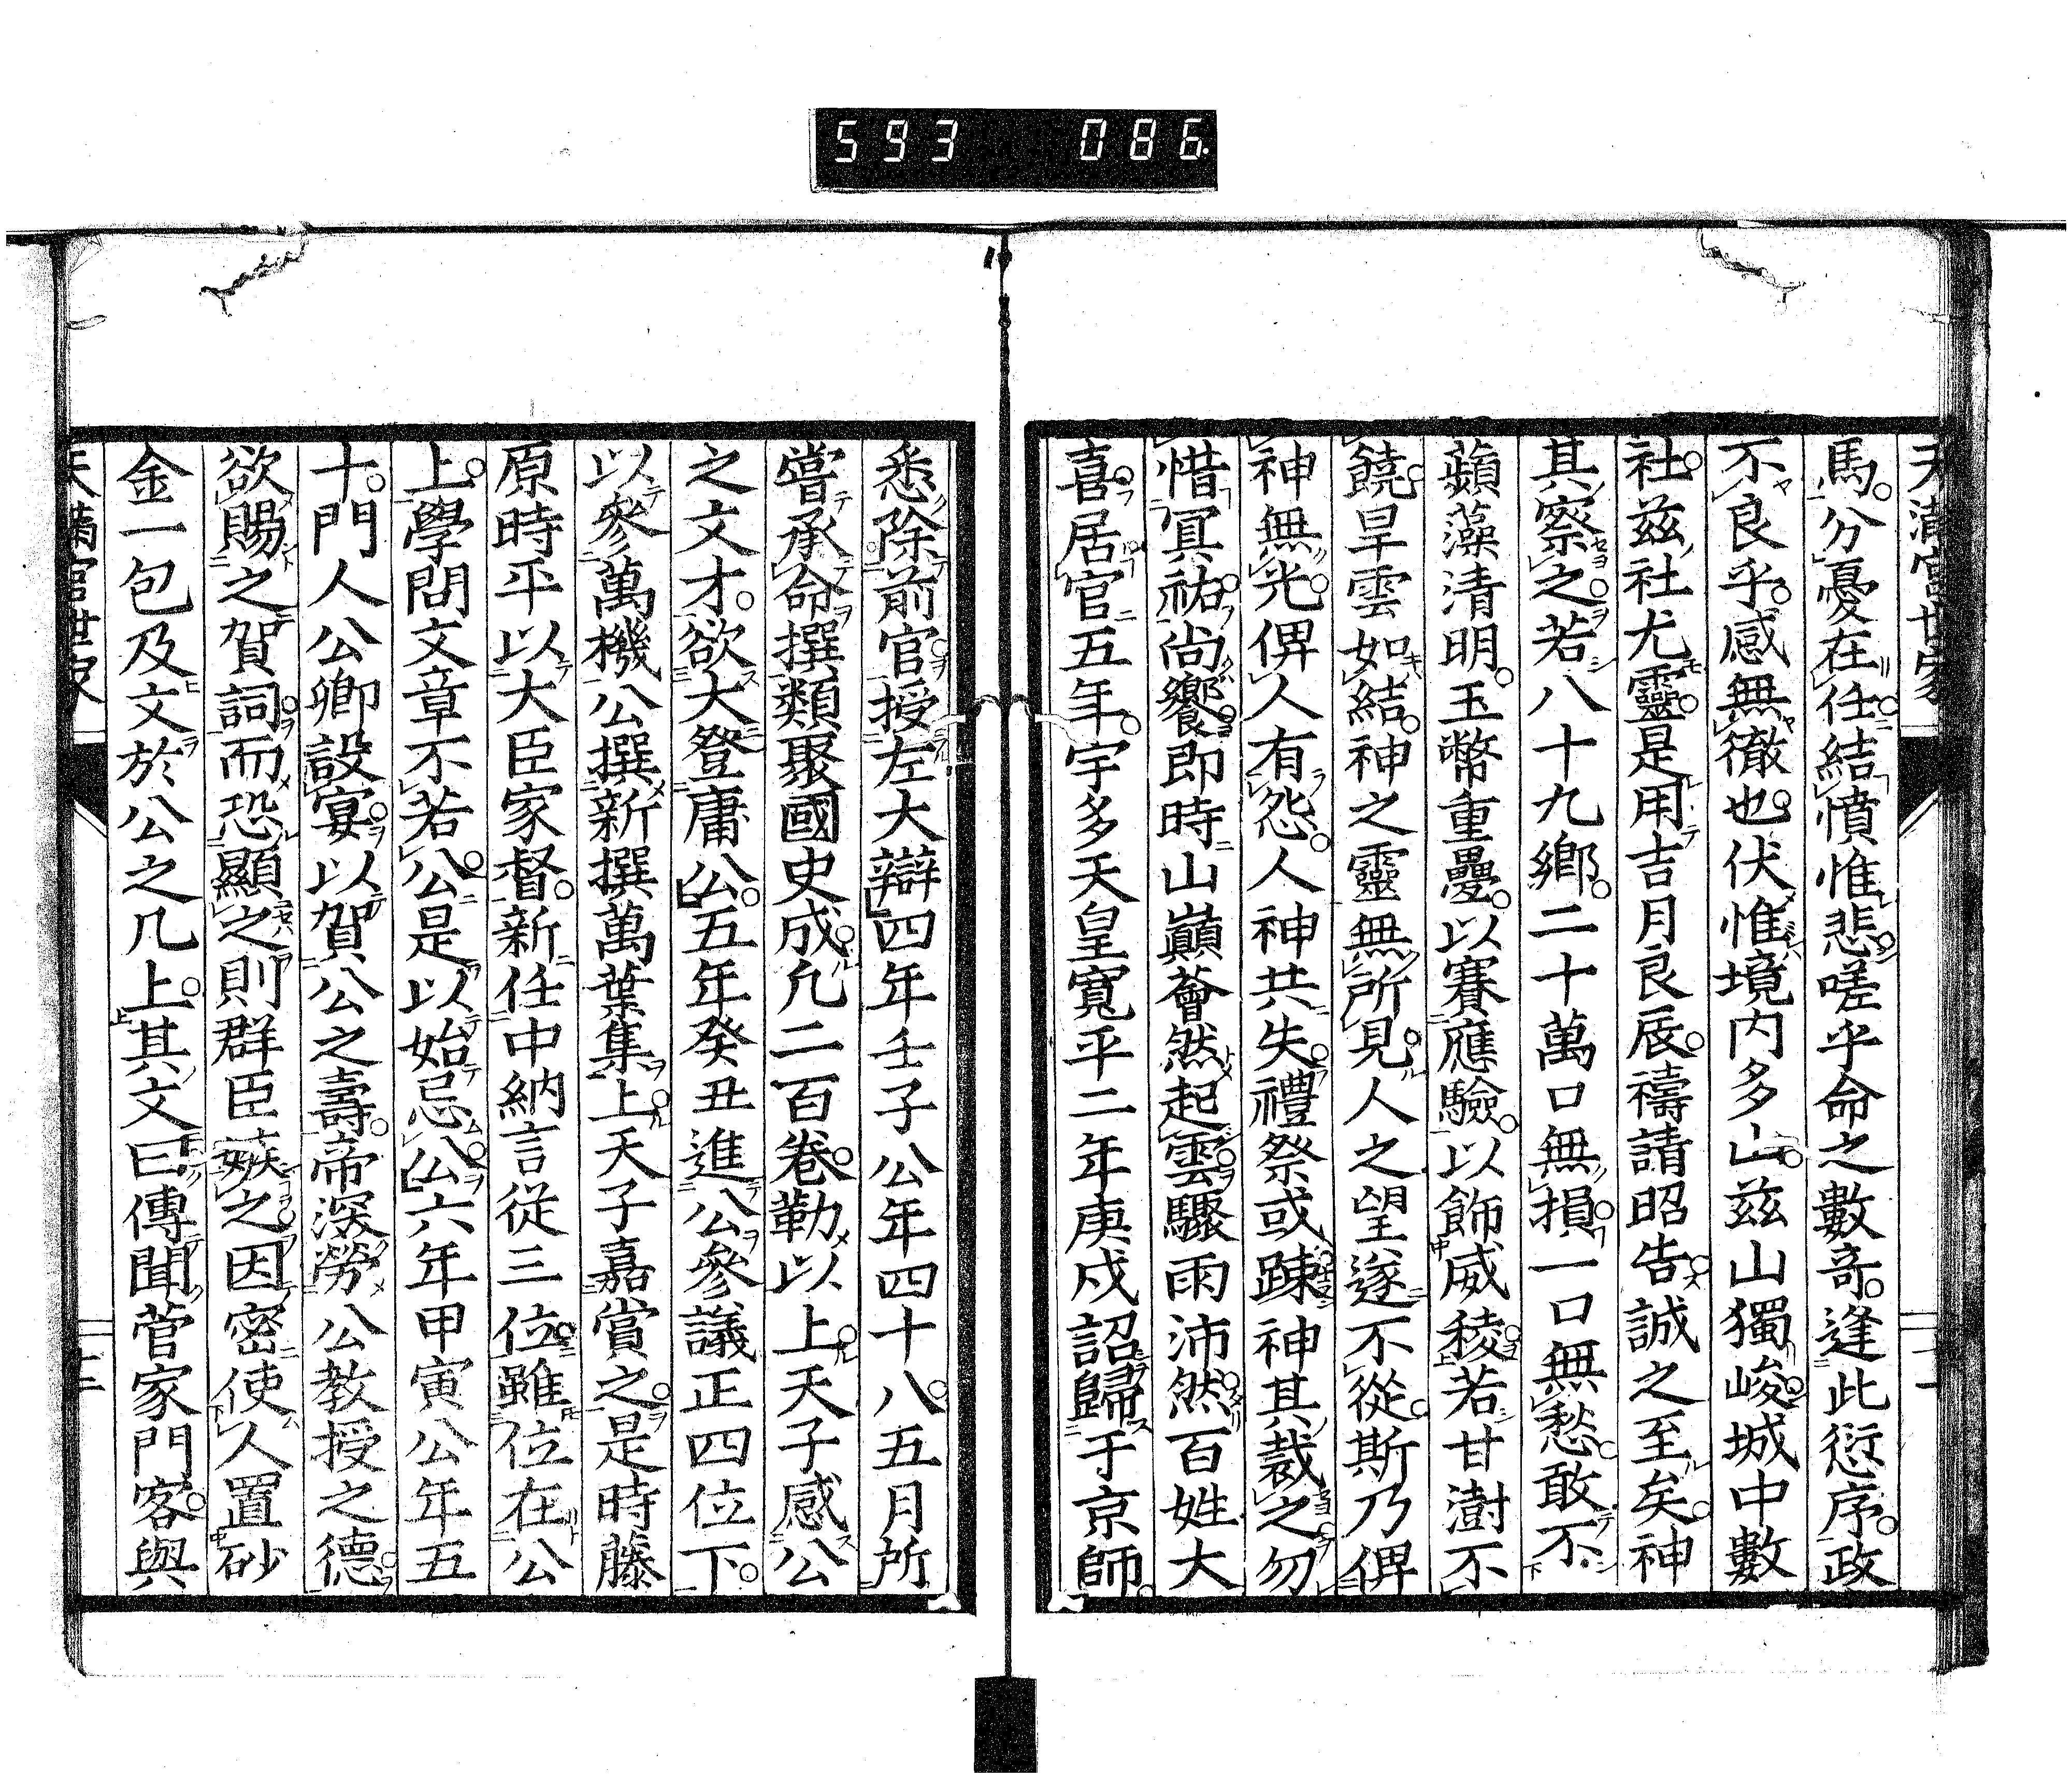 593 086
天滿宮世家
馬分憂在任結憤惟悲嗟乎命之數奇逢此愆序政
不良乎感無徹也伏惟境内多山茲山獨峻城中數
社茲社尤靈是用吉月良辰禱請昭告誠之至矣神
其察之若八十九鄉二十萬口無損一口無愁敢不
蘋藻清明玉幣重疊以賽應驗以飾威稜若甘澍不
饒旱雲如結神之靈無所見人之望遂不從斯乃俾
神無光俾人有怨人神共失禮祭或踈神其裁之勿
惜冥祐尚饗即時山巔薈然起雲驟雨沛然百姓大
喜居官五年宇多天皇寬平二年庚戌詔歸于京師
二
悉除前官授左大辯四年壬子公年四十八五月所
嘗承命撰類聚國史成凡二百卷勒以上天子感公
之文才欲大登庸公五年癸丑進公參議正四位下
以參萬機公撰新撰萬葉集上天子嘉賞之是時藤
原時平以大臣家督新任中納言從三位雖位在公
上學問文章不若公是以始忌公六年甲寅公年五
十門人公卿設宴以賀公之壽帝深勞公教授之德
欲賜之賀詞而恐顯之則群臣嫉之因密使人置砂
金一包及文於公之几上其文曰傳聞菅家門客與
天滿宮世家
三